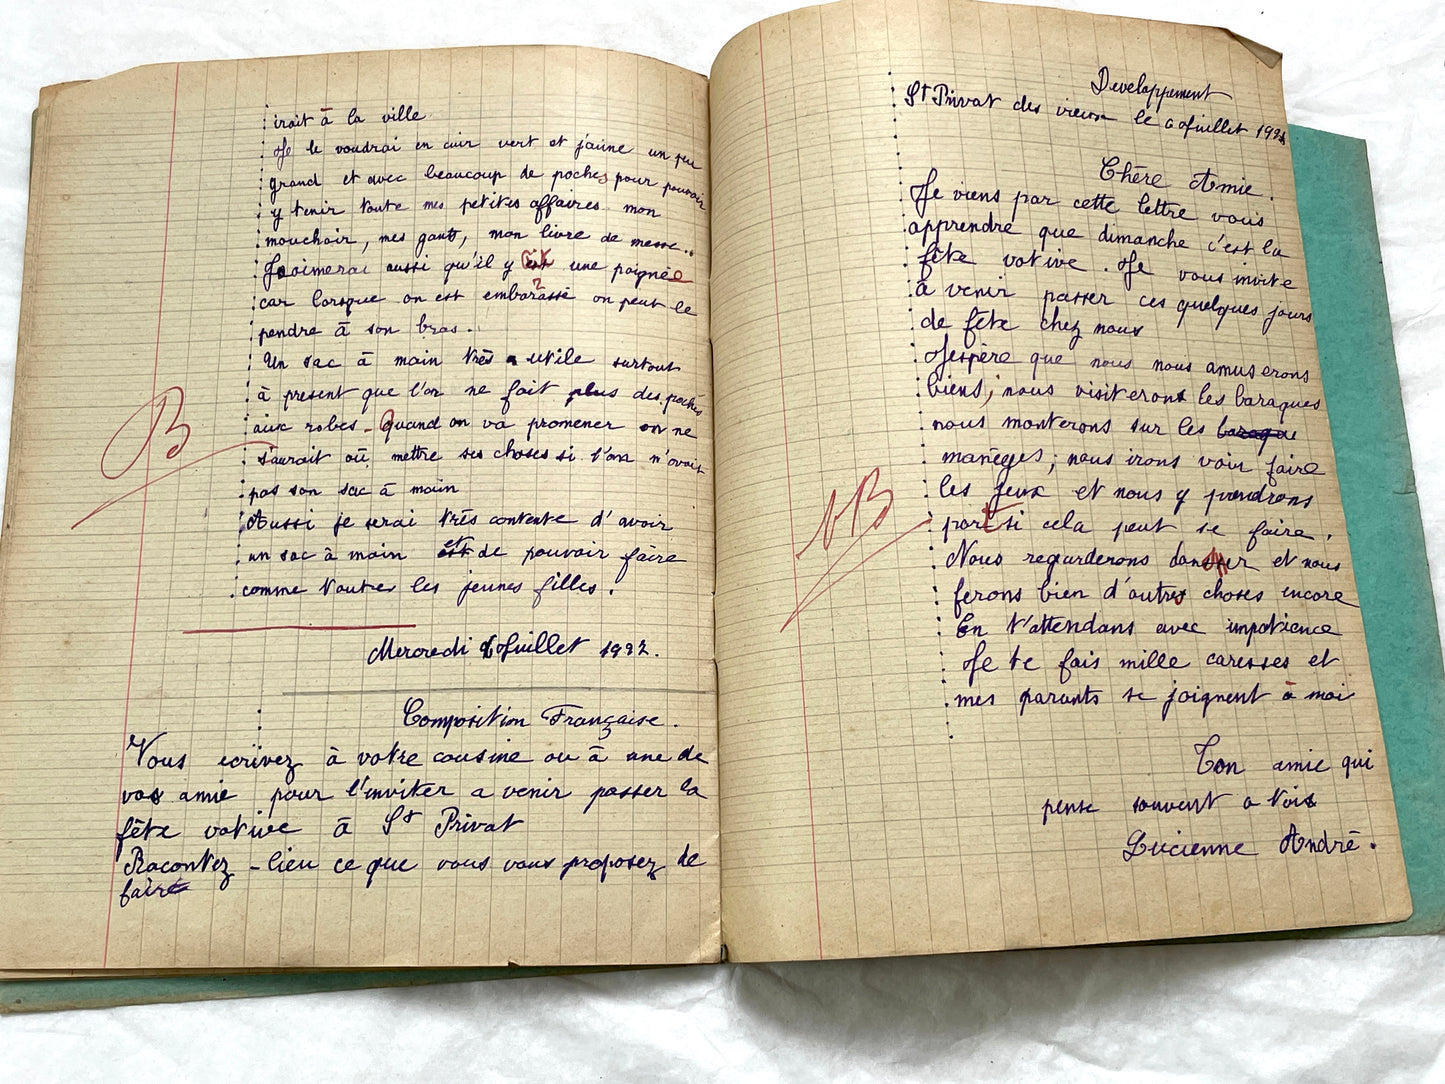 irait à la ville
Je le voudrai en cuir vert et jaune un peu
grand et avec beaucoup de poches pour pouvoir
y tenir toute mes petites affaires mon
mouchoir, mes gants, mon livre de messe..
J'aimerai aussi qu'il y ait une poignée
car lorsque on est embarassé on peut le
pendre à son bras.
Un sac à main très utile surtout
à présent que l'on ne fait plus des poches
aux robes. Quand on va promener on ne
saurait où mettre ses choses si l'on n'avait
pas son sac à main
Aussi je serai très contente d'avoir
un sac à main et de pouvoir faire
comme toutes les jeunes filles.
B
Mercredi 6 Juillet 1932.
Composition Française.
Vous écrivez à votre cousine ou à une de
vos amie pour l'inviter a venir passer la
fête votive à St Privat
Racontez-lien ce que vous vous proposez de
faire
Developpement
St Privat des vieux le 6 Juillet 1932
Chère Amie.
Je viens par cette lettre vous
apprendre que dimanche c'est la
fête votive. Je vous invite
à venir passer ces quelques jours
de fête chez nous
J'espère que nous nous amuserons
biens, nous visiterons les baraques
nous monterons sur les baraque
manèges; nous irons voir faire
les jeux et nous y prendrons
part si cela peut se faire.
Nous regarderons danser et nous
ferons bien d'autres choses encore
En t'attendans avec impatience
Je te fais mille caresses et
mes parants se joignent à moi
Ton amie qui
pense souvent a toi
Lucienne André.
bB